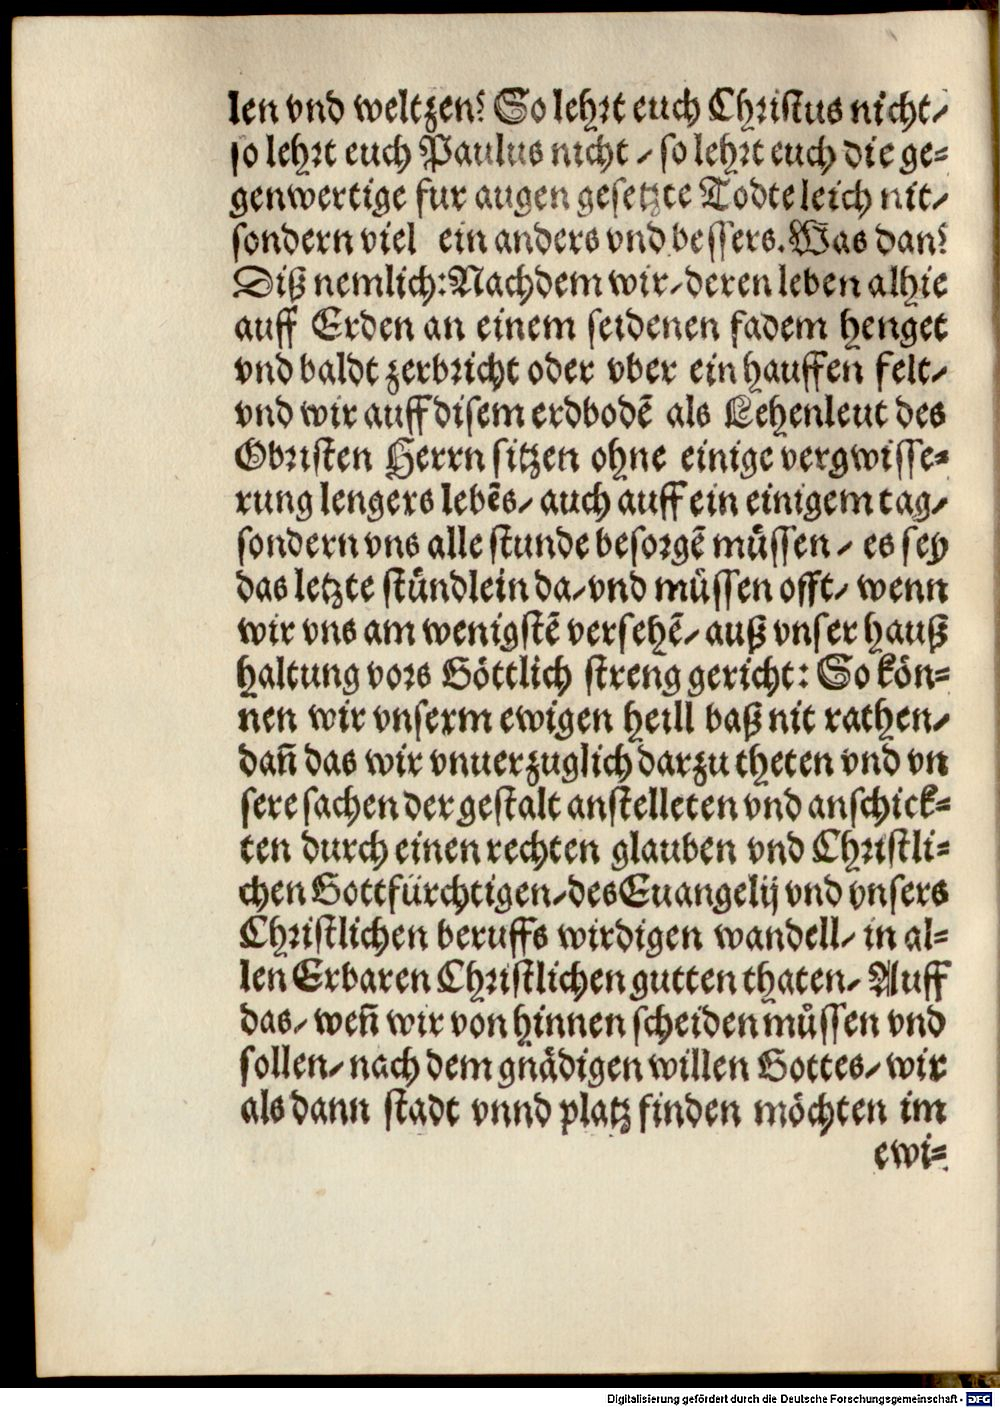 len vnd weltzen? So lehrt euch Christus nicht/
so lehrt euch Paulus nicht / so lehrt euch die ge=
genwertige fur augen gesetzte Todte leich nit/
sondern viel ein anders vnd bessers. Was dan?
Diß nemlich: Nachdem wir/ deren leben alhie
auff Erden an einem seidenen fadem henget
vnd baldt zerbricht oder vber ein hauffen felt/
vnd wir auff disem erdbodē als Lehenleut des
Obristen Herrn sitzen ohne einige vergwisse=
rung lengers lebēs/ auch auff ein einigem tag/
sondern vns alle stunde besorgē müssen/ es sey
das letzte stündlein da/ vnd müssen offt/ wenn
wir vns am wenigstē versehē/ auß vnser hauß
haltung vors Göttlich streng gericht: So kön=
nen wir vnserm ewigen heill baß nit rathen/
dañ das wir vnuerzuglich darzu theten vnd vn
sere sachen der gestalt anstelleten vnd anschick=
ten durch einen rechten glauben vnd Christli=
chen Gottfürchtigen/ des Euangelij vnd vnsers
Christlichen beruffs wirdigen wandell/ in al=
len Erbaren Christlichen gutten thaten/ Auff
das/ weñ wir von hinnen scheiden müssen vnd
sollen/ nach dem gnädigen willen Gottes/ wir
als dann stadt vnnd platz finden möchten im
ewi=
Digitalisierung gefördert durch die Deutsche Forschungsgemeinschaft - DFG